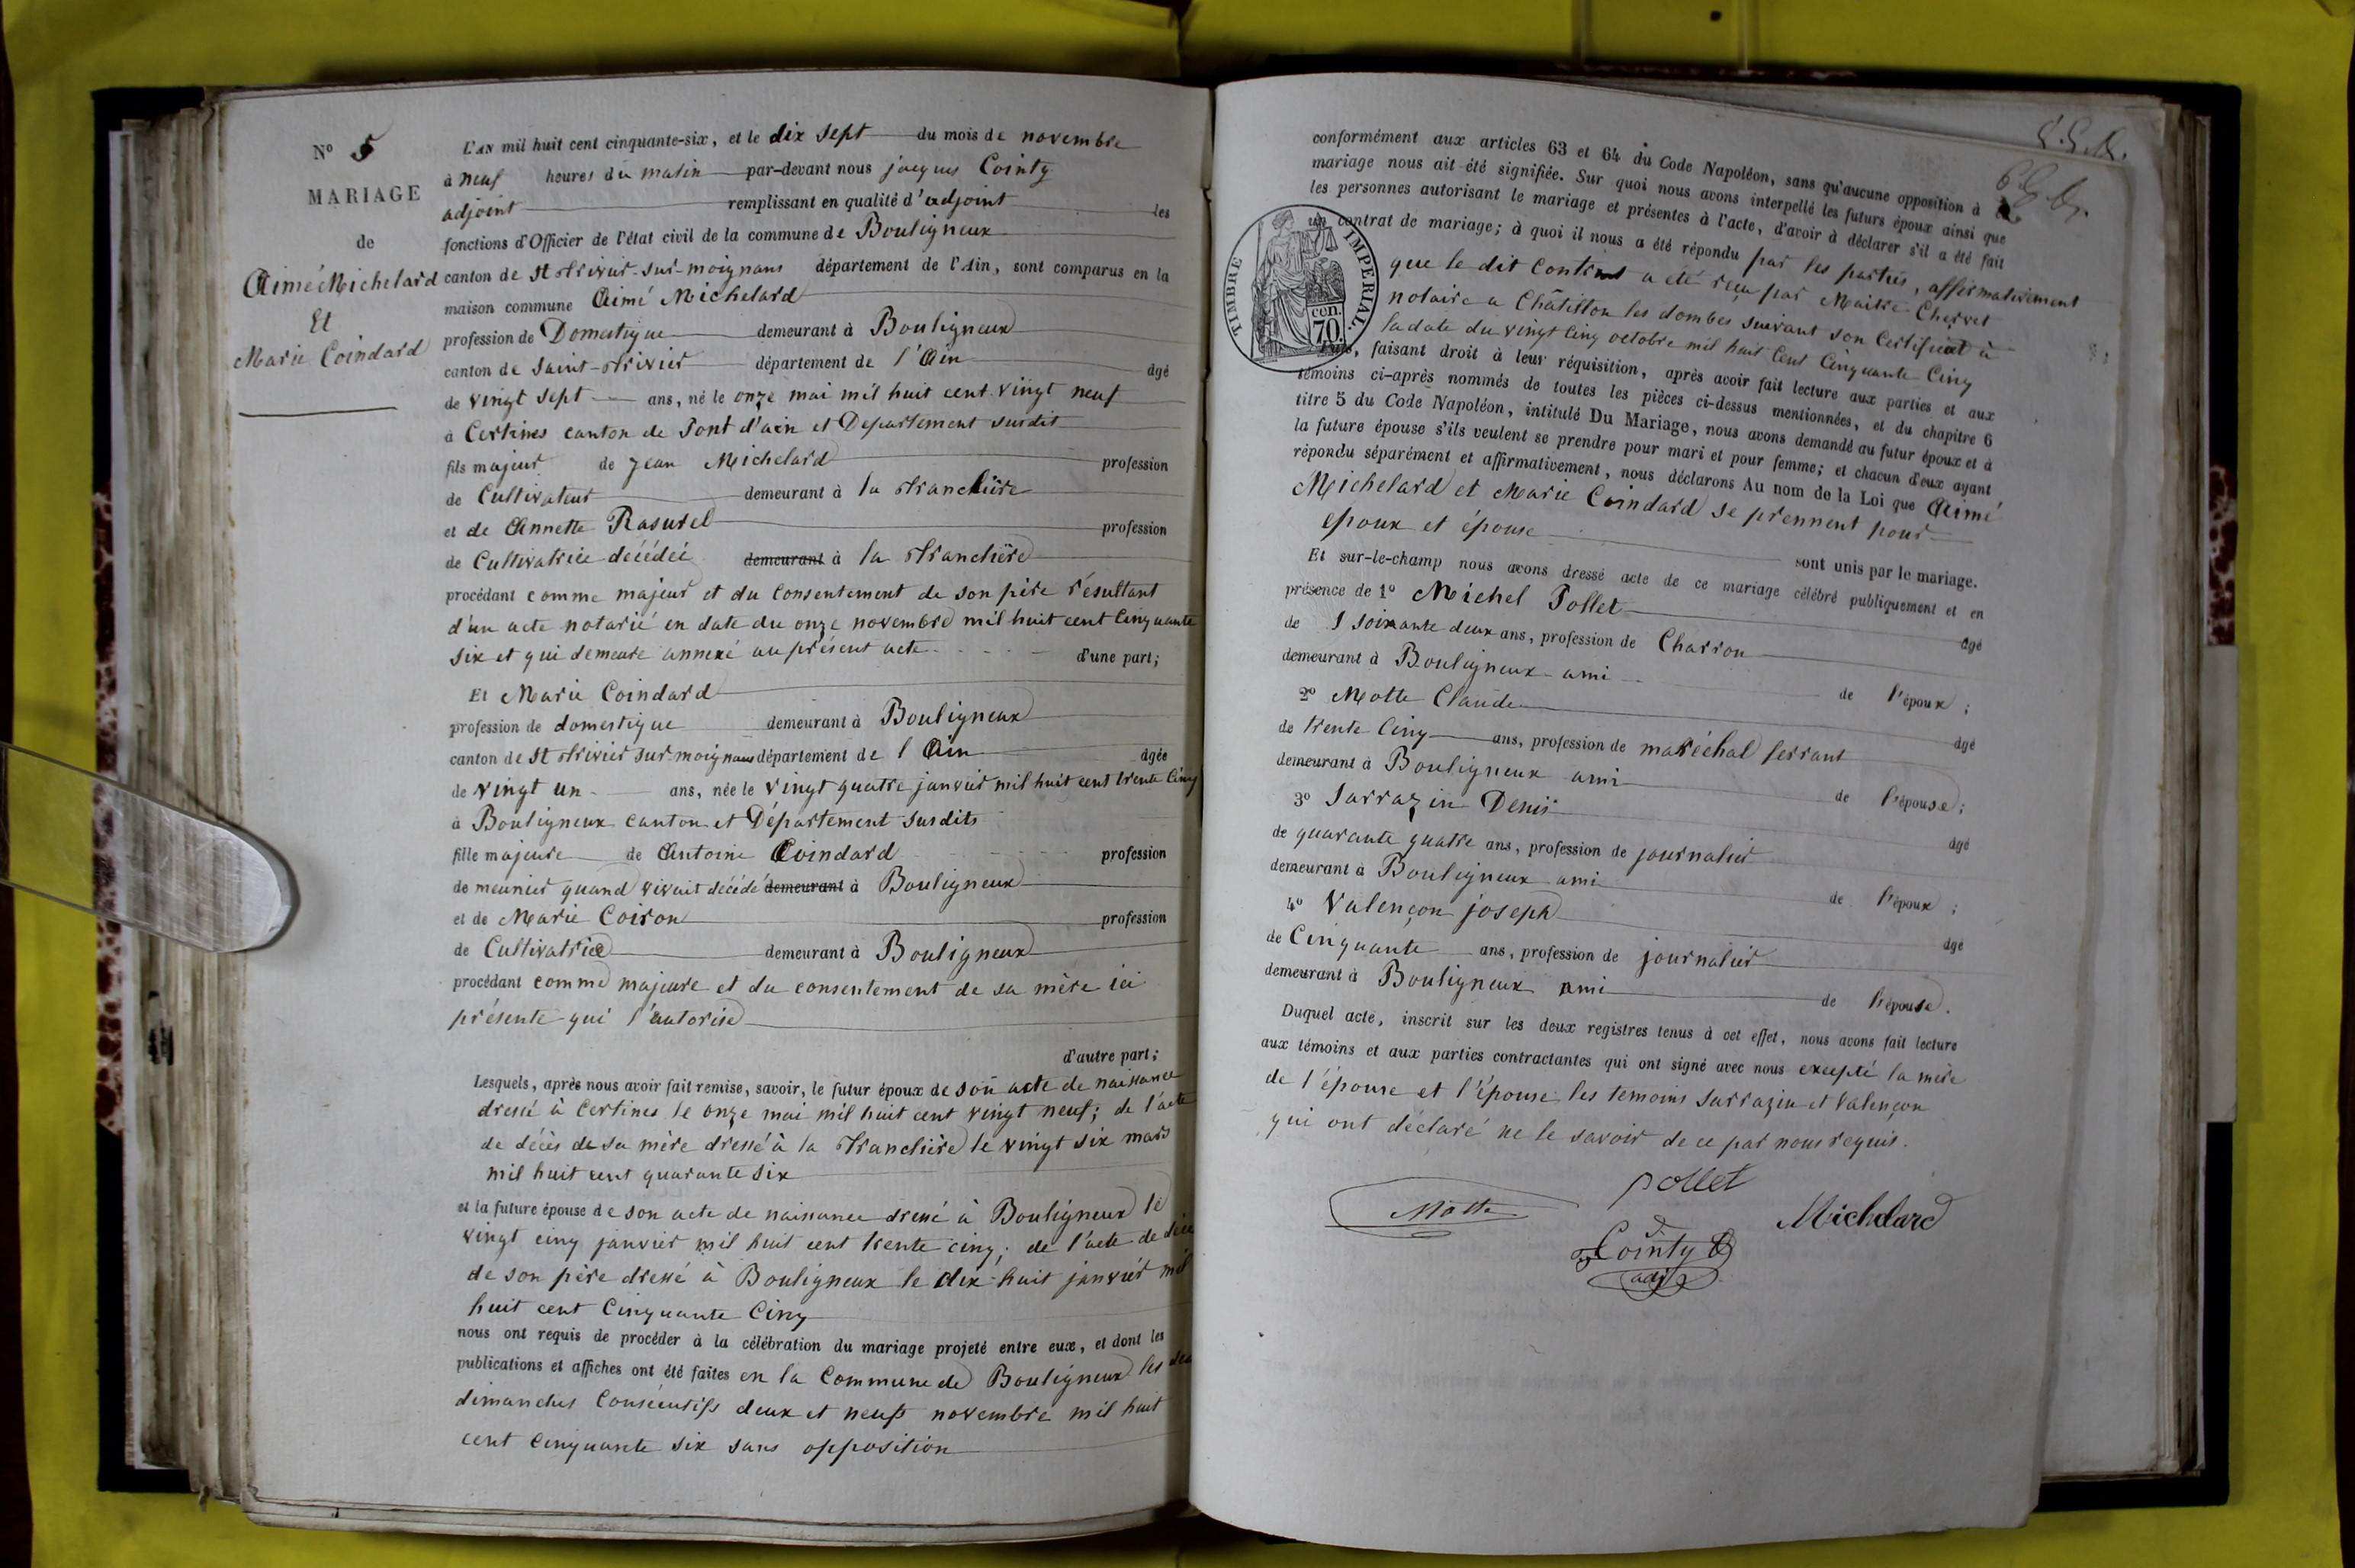 N° 5
MARIAGE
de
Aimé Michelard
Et
Marie Coindard
L'AN mil huit cent cinquante-six, et le dix sept du mois de novembre
à neuf heures du matin par-devant nous jacques Cointy
adjoint remplissant en qualité d'adjoint les
fonctions d'Officier de l'état civil de la commune de Bouligneux
canton de St Trivier-sur-moignans département de l'Ain, sont comparus en la
maison commune Aimé Michelard
profession de Domestique demeurant à Bouligneux
canton de Saint-Trivier département de l'Ain âgé
de vingt sept ans, né le onze mai mil huit cent vingt neuf
à Certines canton de Pont d'ain et Departement susdit
fils majeur de Jean Michelard profession
de Cultivateur demeurant à la Tranclière
et de Annette Rasurel profession
de Cultivatrice décédée demeurant à la Tranclière
procédant comme majeur et du Consentement de son père résultant
d'un acte notarié en date du onze novembre mil huit cent Cinquante
six et qui demeure annexé au présent acte d'une part;
Et Marie Coindard
profession de domestique demeurant à Bouligneux
canton de St Trivier sur-moignans département de l'Ain âgée
de vingt un ans, née le vingt quatre janvier mil huit cent trente Cinq
à Bouligneux Canton et Département susdits
fille majeure de Antoine Coindard profession
de meunier quand vivait décédé demeurant à Bouligneux
et de Marie Coiron profession
de Cultivatrice demeurant à Bouligneux
procédant comme majeure et du consentement de sa mère ici
présente qui l'autorise
d'autre part;
Lesquels, après nous avoir fait remise, savoir, le futur époux de son acte de naissance
dressé à Certines le onze mai mil huit cent vingt neuf; de l'acte
de décès de sa mère dressé à la Tranclière le vingt six mars
mil huit cent quarante six
et la future épouse de son acte de naissance dressé à Bouligneux le
vingt cinq janvier mil huit cent trente cinq; de l'acte de décès
de son père dressé à Bouligneux le dix-huit janvier mil
huit cent Cinquante Cinq
nous ont requis de procéder à la célébration du mariage projeté entre eux, et dont les
publications et affiches ont été faites en la Commune de Bouligneux les
dimanches Consécutifs deux et neuf novembre mil huit
cent cinquante six sans opposition
conformément aux articles 63 et 64 du Code Napoléon, sans qu'aucune opposition à ce
mariage nous ait été signifiée. Sur quoi nous avons interpellé les futurs époux ainsi que
les personnes autorisant le mariage et présentes à l'acte, d'avoir à déclarer s'il a été fait
un contrat de mariage; à quoi il nous a été répondu par les parties, affirmativement
que le dit Contrat a été reçu par Maître Chervet
notaire a Châtillon les dombes suivant son Certificat à
la date du vingt Cinq octobre mil huit Cent Cinquante Cinq
TIMBRE IMPERIAL
cen. 70
Puis, faisant droit à leur réquisition, après avoir fait lecture aux parties et aux
témoins ci-après nommés de toutes les pièces ci-dessus mentionnées, et du chapitre 6
titre 5 du Code Napoléon, intitulé Du Mariage, nous avons demandé au futur époux et à
la future épouse s'ils veulent se prendre pour mari et pour femme; et chacun d'eux ayant
répondu séparément et affirmativement, nous déclarons Au nom de la Loi que Aimé
Michelard et Marie Coindard se prennent pour
epoux et épouse sont unis par le mariage.
Et sur-le-champ nous avons dressé acte de ce mariage célébré publiquement et en
présence de 1° Michel Pollet âgé
de soixante deux ans, profession de Charron
demeurant à Bouligneux ami de l'époux;
2° Motte Claude âgé
de trente Cinq ans, profession de maréchal ferrant
demeurant à Bouligneux ami de l'épouse;
3° Sarrazin Denis âgé
de quarante quatre ans, profession de journalier
demeurant à Bouligneux ami de l'époux;
4° Valençon joseph âgé
de Cinquante ans, profession de journalier
demeurant à Bouligneux ami de l'épouse.
Duquel acte, inscrit sur les deux registres tenus à cet effet, nous avons fait lecture
aux témoins et aux parties contractantes qui ont signé avec nous excepté la mère
de l'épouse et l'épouse les temoins Sarrazin et Valençon
qui ont déclaré ne le savoir de ce par nous requis.
pollet
Motte
Michelard
Cointy
adj